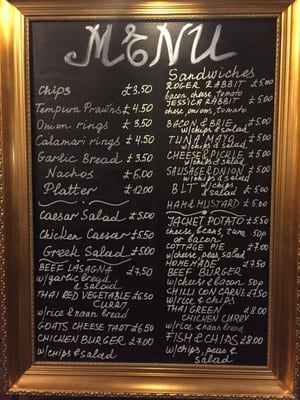 MENU
Chips £3.50
Tempura Prawns £4.50
Onion rings £3.50
Calamari rings £4.50
Garlic Bread £3.50
Nachos £6.00
Platter £12.00
Caesar Salad £5.00
Chicken Caesar £5.50
Greek Salad £5.00
BEEF LASAGNA £7.50
w/garlic bread
& salad
THAI RED VEGETABLE £6.50
CURRY
w/rice & naan bread
GOATS CHEESE TART £6.50
CHICKEN BURGER £7.00
w/chips & salad
Sandwiches
ROGER RABBIT £5.00
bacon, cheese, tomato
JESSICA RABBIT £5.00
cheese, onions, tomato
BACON & BRIE £5.00
w/chips & salad
TUNA MAYO £5.00
w/chips & salad
CHEESE & PICKLE £5.00
w/chips & salad
SAUSAGE & ONION £5.00
w/chips & salad
BLT w/chips £5.00
& salad
HAM & MUSTARD £5.00
JACKET POTATO £5.50
cheese, beans, tuna 50p
or bacon
COTTAGE PIE £7.00
w/cheese, peas, salad
HOMEMADE £7.50
BEEF BURGER
w/cheese & bacon 50p
CHILLI CON CARNE £7.50
w/rice & chips
THAI GREEN £8.00
CHICKEN CURRY
w/rice & naan bread
FISH & CHIPS £8.00
w/chips, peas &
salad